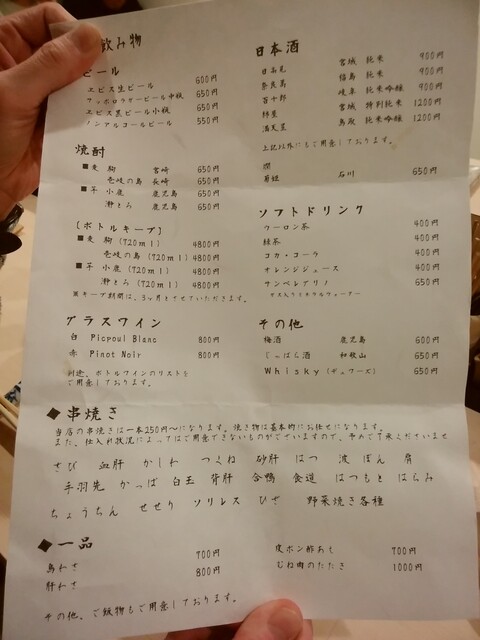 飲み物
ビール
ヱビス生ビール 600円
サッポロラガービール中瓶 650円
ヱビス黒ビール小瓶 650円
ノンアルコールビール 550円
焼酎
■麦 駒 宮崎 650円
壱岐の島 長崎 650円
■芋 小鹿 鹿児島 650円
瀞とろ 鹿児島 650円
[ボトルキープ]
■麦 駒 (720ml) 4800円
壱岐の島 (720ml) 4800円
■芋 小鹿 (720ml) 4800円
瀞とろ (720ml) 4800円
※キープ期間は、3ヶ月とさせていただきます。
グラスワイン
白 Picpoul Blanc 800円
赤 Pinot Noir 800円
別途、ボトルワインのリストを
ご用意しております。
日本酒
日高見 宮城 純米 900円
奈良萬 福島 純米 900円
百十郎 岐阜 純米吟醸 900円
宮城 特別純米 1200円
鳥取 純米吟醸 1200円
上記以外にもご用意しております。
燗
菊姫 石川 650円
ソフトドリンク
ウーロン茶 400円
緑茶 400円
コカ・コーラ 400円
オレンジジュース 400円
サンペレグリノ 650円
ガス入りミネラルウォーター
その他
梅酒 鹿児島 600円
じゃばら酒 和歌山 650円
Whisky (デュワーズ) 650円
◆串焼き
当店の串焼きは一本250円〜になります。焼き物は基本的にお任せになります。
また、仕入れ状況によってはご用意できないものがございますので、予めご了承くださいませ
さび 血肝 かしわ つくね 砂肝 はつ 波 ぼん 肩
手羽先 かっぱ 白玉 背肝 合鴨 食道 はつもと はらみ
ちょうちん せせり ソリレス ひざ 野菜焼き各種
◆一品
鳥わさ 700円
肝わさ 800円
皮ポン酢おし 700円
むね肉のたたき 1000円
その他、ご飯物もご用意しております。